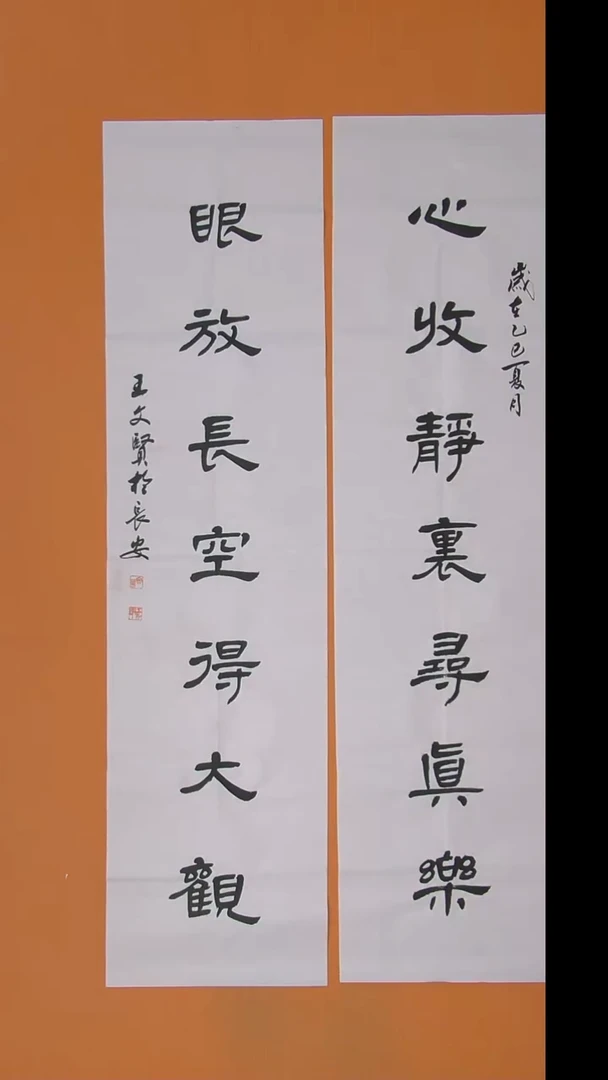 歲在乙巳夏月
心收靜裏尋眞樂
眼放長空得大觀
王文賢於長安